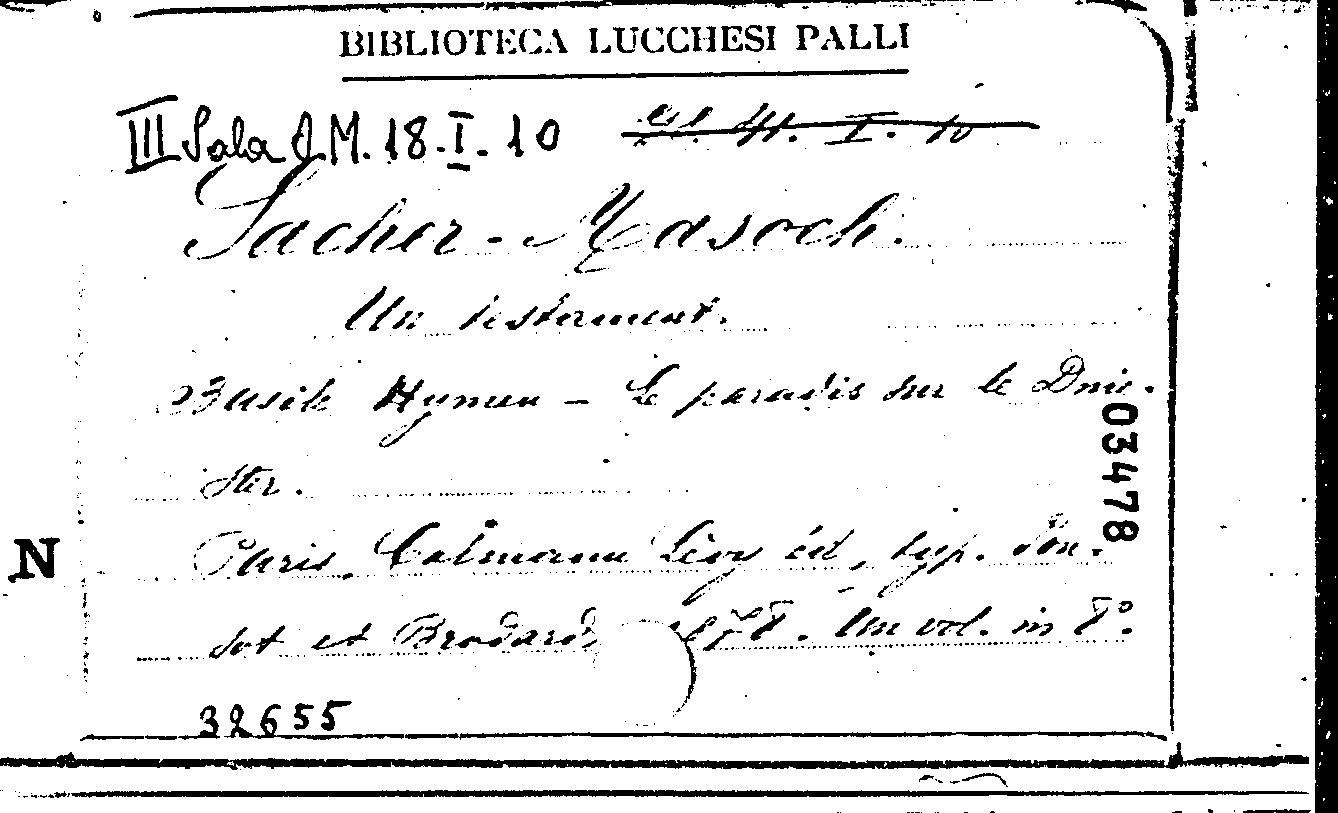 BIBLIOTECA LUCCHESI PALLI
III Sala A.M. 18.I.10
41. I. 10
Sacher-Masoch.
Un testament.
Basile Hymen – Le paradis sur le Dnie-
ster.
03478
N
Paris, Calmann Lévy éd, typ.
et Brodard, 1878. Un vol. in 8°.
32655